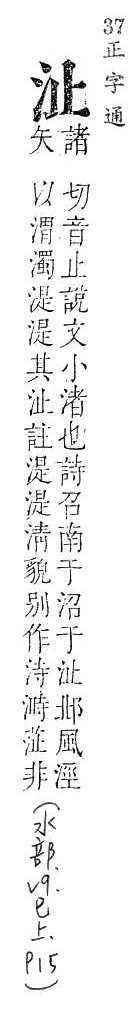 37 正字通
沚
諸矢
切音止說文小渚也詩召南于沼于沚邶風涇
以渭濁湜湜其沚註湜湜淸貌別作洔非
(水部.v9.巳上.P15)